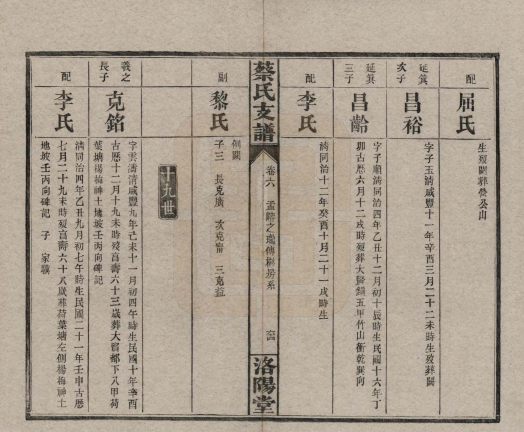 配
屈氏
生歿闕葬螢公山
延箕
次子
昌裕
字子玉清咸豐十一年辛酉三月二十二未時生歿葬闕
延箕
三子
昌齡
字子順清同治四年乙丑十二月初十辰時生民國十六年丁
卯古歷六月十二戌時歿葬大 五甲竹山衝乾巽向
配
李氏
清同治十二年癸酉十月二十一戌時生
蔡氏支譜
卷六
洛陽堂
副
黎氏
俱闕
子三 長克廣 次克 三克益
十九世
義之
長子
克銘
字雲濤清咸豐九年己未十一月初四午時生民國十年辛酉
古歷十二月十九未時歿享壽六十三歲葬大 都下八甲荷
葉塘楊梅神土地坡壬丙向碑記
配
李氏
清同治四年乙丑九月初七午時生民國二十一年壬申古歷
七月二十九未時歿享壽六十八歲葬荷葉塘左側楊梅神土
地坡壬丙向碑記 子 家驥